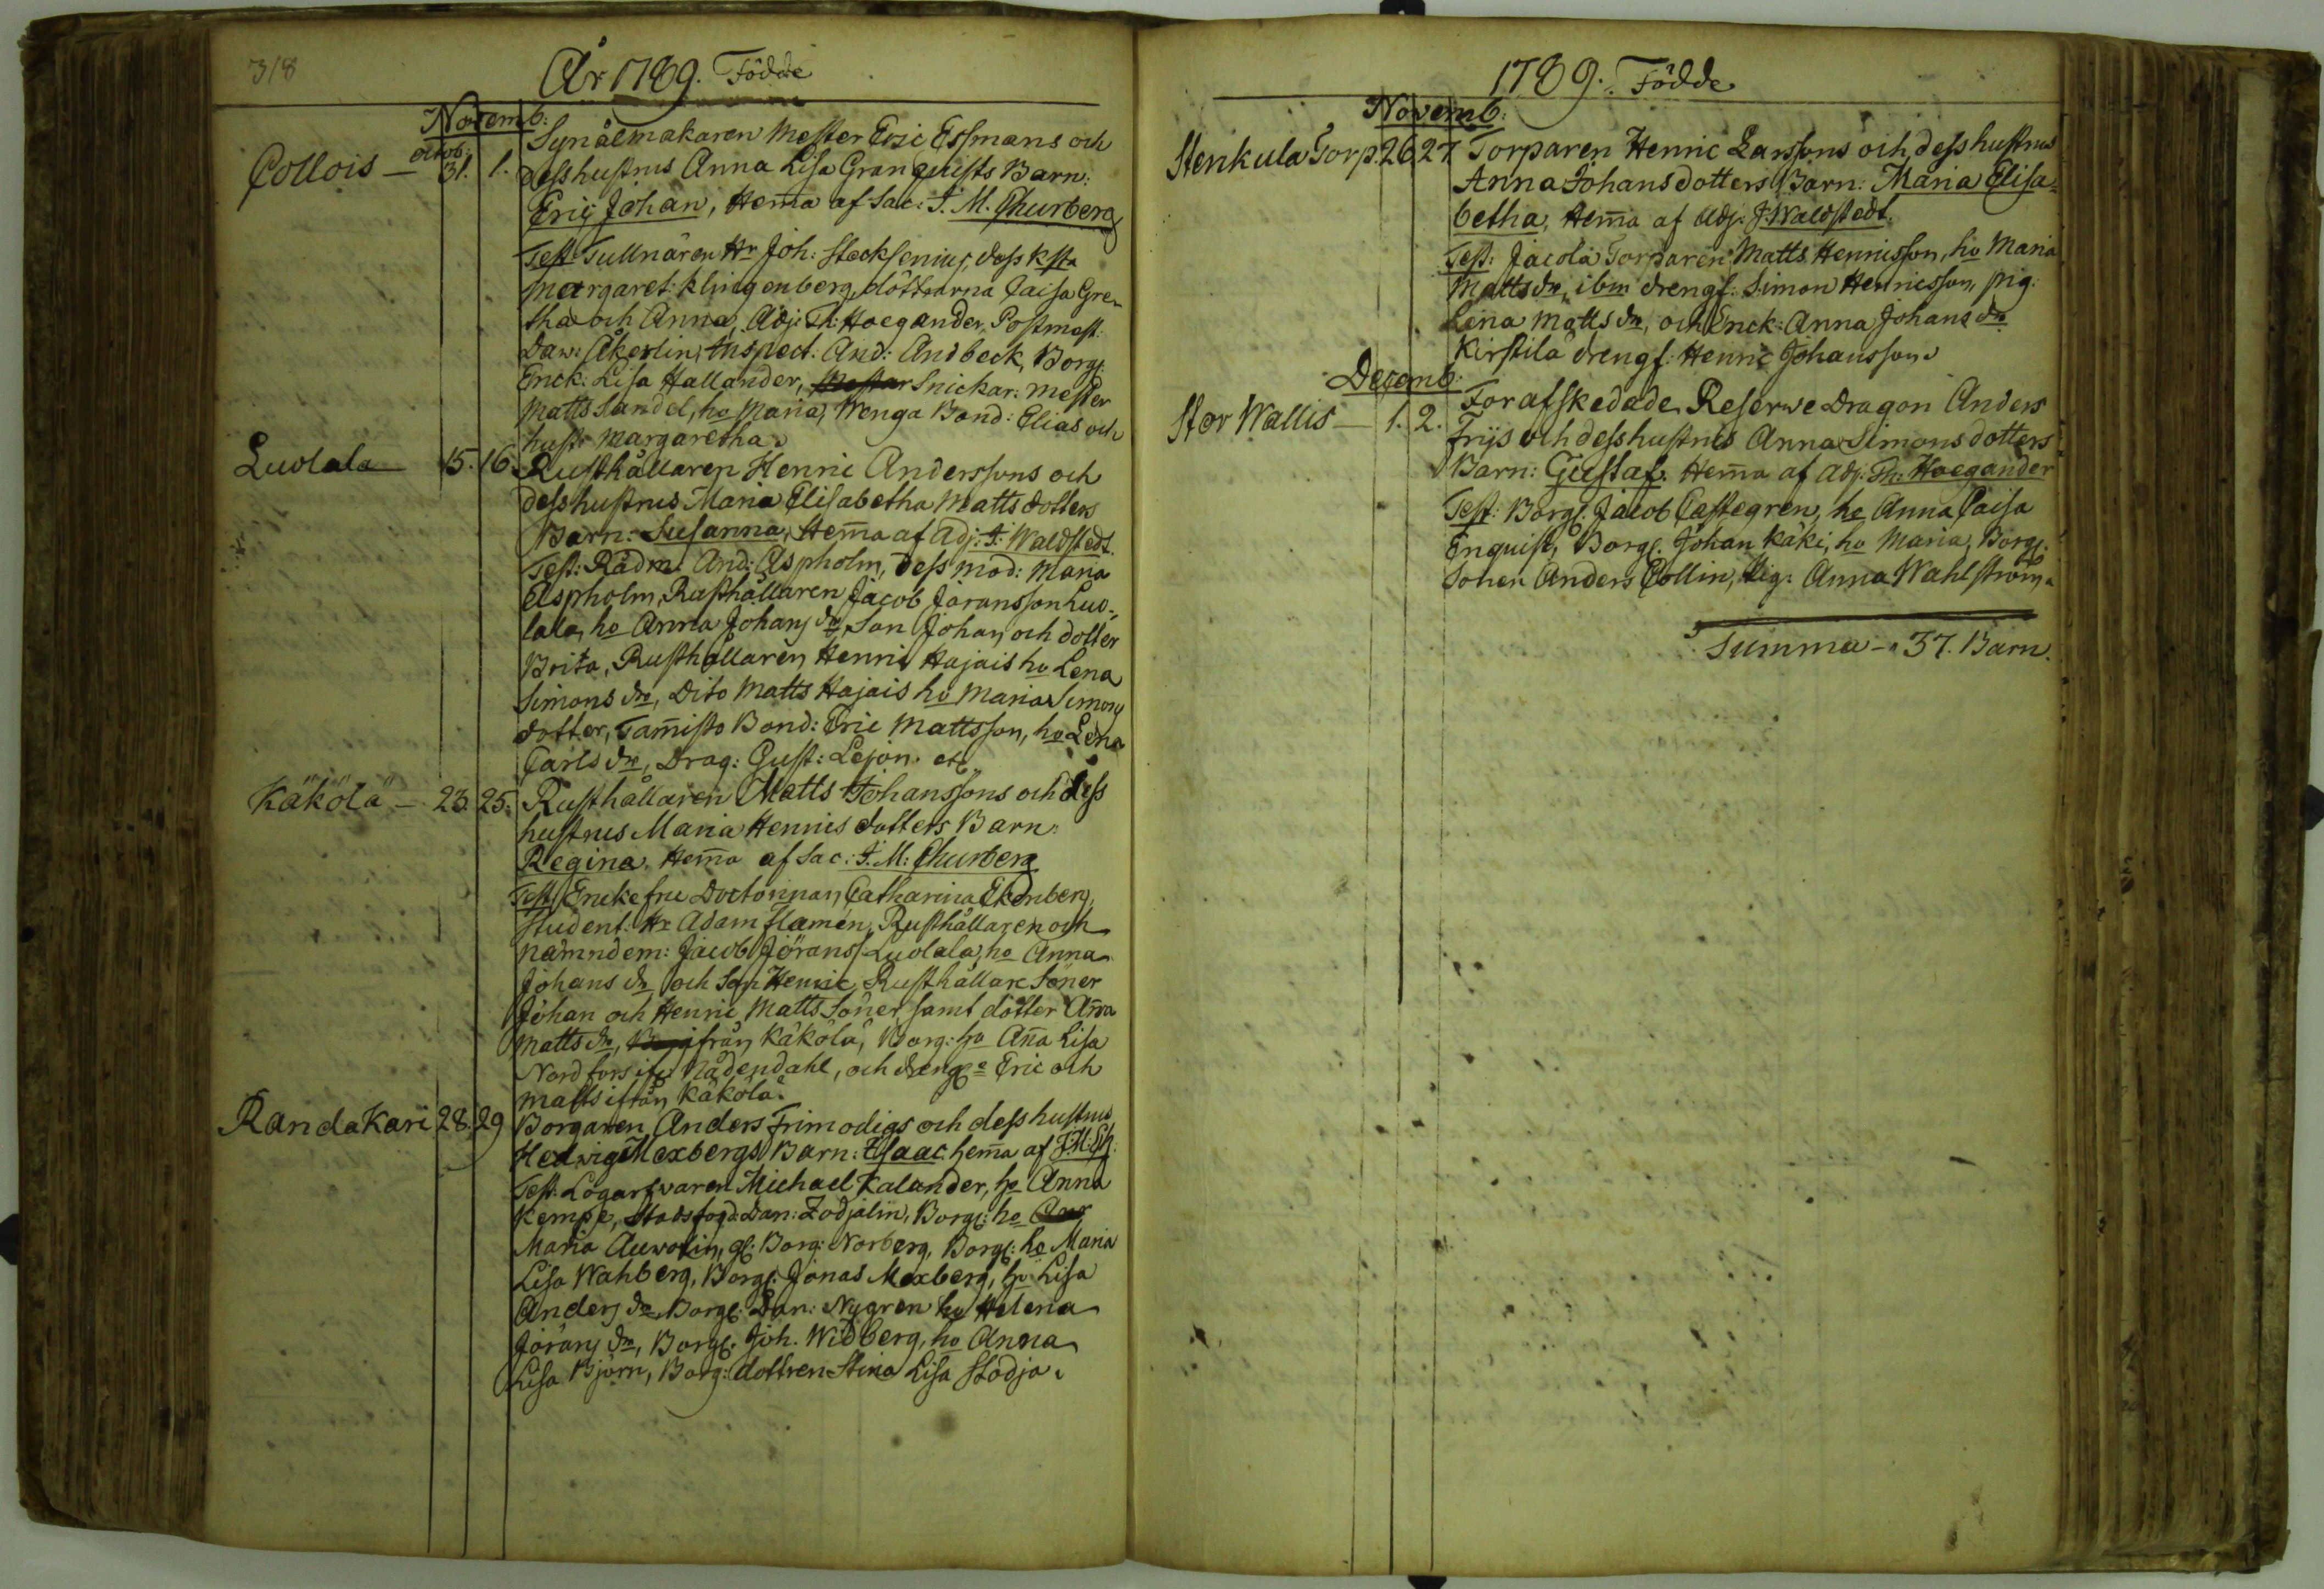 318
År 1789. Födde
Novemb:
Collois — octob: 31. 1. Synålmakaren Mester Eric Essmans och
dess hustrus Anna Lisa Granquists Barn:
Eric Johan, Hem̄a af Sac: J. M. Churberg
Test Tullnären Hr Joh: Stecksenius, dess K
Margaret: Klingenberg, döttrarna Caisa Gre-
tha och Anna, Adj: Th: Hoegander, Postmest:
Dan: Åkerlin, Inspect: And: Andbeck, Borg:
Enck: Lisa Hallander, Snickar: Mester
Matts Sandel, ho Maria, Wenga Bond: Elias och
hust: Margaretha.
Luolala 15. 16. Rusthållaren Henric Anderssons och
dess hustrus Maria Elisabetha Matts dotters
Barn: Susanna, Hem̄a af Adj: J: Waldstedt.
Test: Rådm: And: Aspholm, dess mod: Maria
Aspholm, Rusthållaren Jacob Jöransson Luo-
lala, ho Anna Johans dr, Son Johan och dotter
Brita, Rusthållaren Henric Hajais ho Lena
Simons dr, Dito Matts Hajais ho Maria Simons
dotter, Tam̄isto Bond: Eric Mattsson, ho Lena
Carls dr, Drag: Gust: Lejon. etc.
Käkölä — 23. 25. Rusthållaren Matts Johanssons och dess
hustrus Maria Henrics dotters Barn:
Regina. Hem̄a af Sac: J. M: Churberg
Test Enkefru Doctorinnan Catharina Ekenberg,
Student: Hr Adam Flamén, Rusthållaren och
nämndem: Jacob Jörans: Luolala, ho Anna
Johans dr och Son Henric, Rusthållare Söner
Johan och Henric Matts Söner samt dotter An̄a
Matts dr, ifrån Käkölä, Borg: ho An̄a Lisa
Nordfors ifr. Nådendahl, och dreng: Eric och
Matts ifrån Käkölä.
Randakari 28. 29 Borgaren Anders Frimodigs och dess hustrus
Hedwig Mexbergs Barn: Isaac. hem̄a af J: M: Ch:
Test: Logarfvaren Michael Kalander, ho Anna
Kempe, Stadsford: Dan: Zodjalin, Borg: ho
Maria Auwolin, gl: Borg: Norberg, Borg: ho Maria
Lisa Wahberg, Borg: Jonas Mexberg, ho Lisa
Anders dr, Borg: Dan: Nygren ho Helena
Jörans dr, Borg: Joh. Widberg, ho Anna
Lisa Björn, Borg: dottren Stina Lisa Stodja.
1789. Födde
Novemb:
Stenkula Torp. 26 27. Torparen Henric Larssons och dess hustrus
Anna Johans dotters Barn: Maria Elisa-
betha, Hem̄a af Adj: J: Waldstedt.
Test: Jacola Torparen Matts Henricsson, ho Maria
Matts dr, ibm drengs: Simon Henricsson, pig:
Lena Matts dr, och Enck: Anna Johans dr
Kirstilä drengs: Henric Johansson.
Decemb:
Stor Wallis — 1. 2. Forafskedade Reserwe Dragon Anders
Frijs och dess hustrus Anna Simons dotters
Barn: Gustaf. Hem̄a af Adj: Th: Hoegander
Test: Borg: Jacob Castegren, ho Anna Caisa
Enquist, Borg: Johan Käki, ho Maria, Borg:
Sonen Anders Collin, Pig: Anna Wahlström.
Summa — 37. Barn.